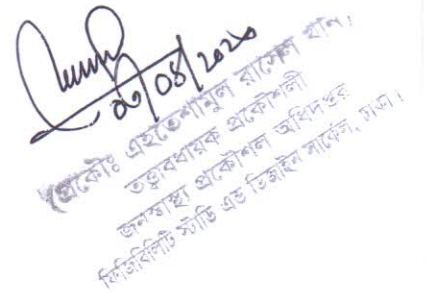 ০৬/০৪/২০২০
(প্রকৌঃ এহতেশামুল রাসেল খান।
তত্ত্বাবধায়ক প্রকৌশলী
জনস্বাস্থ্য প্রকৌশল অধিদপ্তর
ফিজিবিলিটি স্টাডি এন্ড ডিজাইন সার্কেল, ঢাকা।